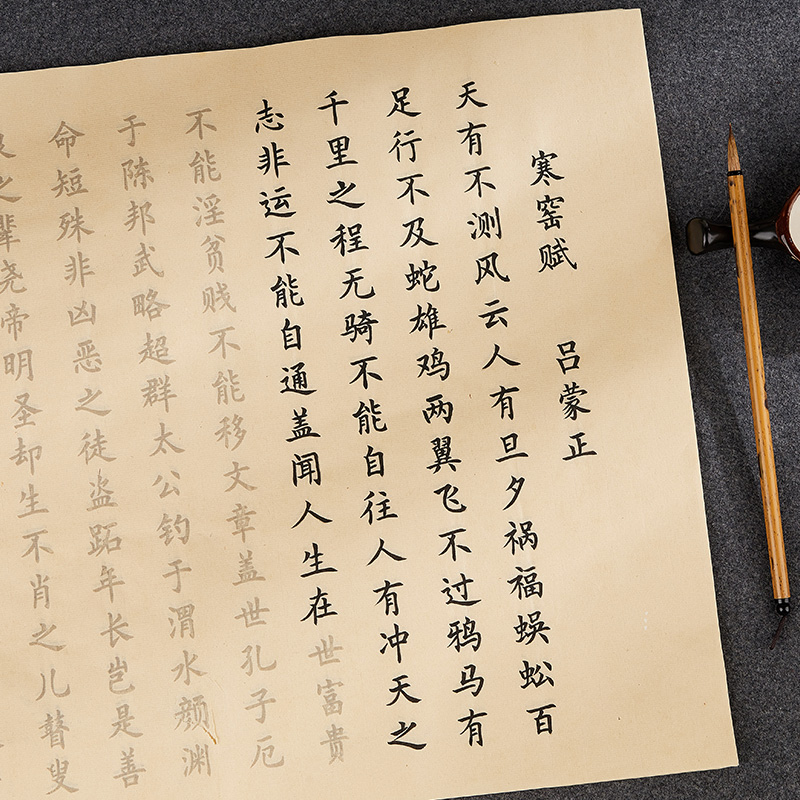 寒窑赋 吕蒙正
天有不测风云人有旦夕祸福蜈蚣百
足行不及蛇雄鸡两翼飞不过鸦马有
千里之程无骑不能自往人有冲天之
志非运不能自通盖闻人生在世富贵
不能淫贫贱不能移文章盖世孔子厄
于陈邦武略超群太公钓于渭水颜渊
命短殊非凶恶之徒盗跖年长岂是善
良之辈尧帝明圣却生不肖之儿瞽叟